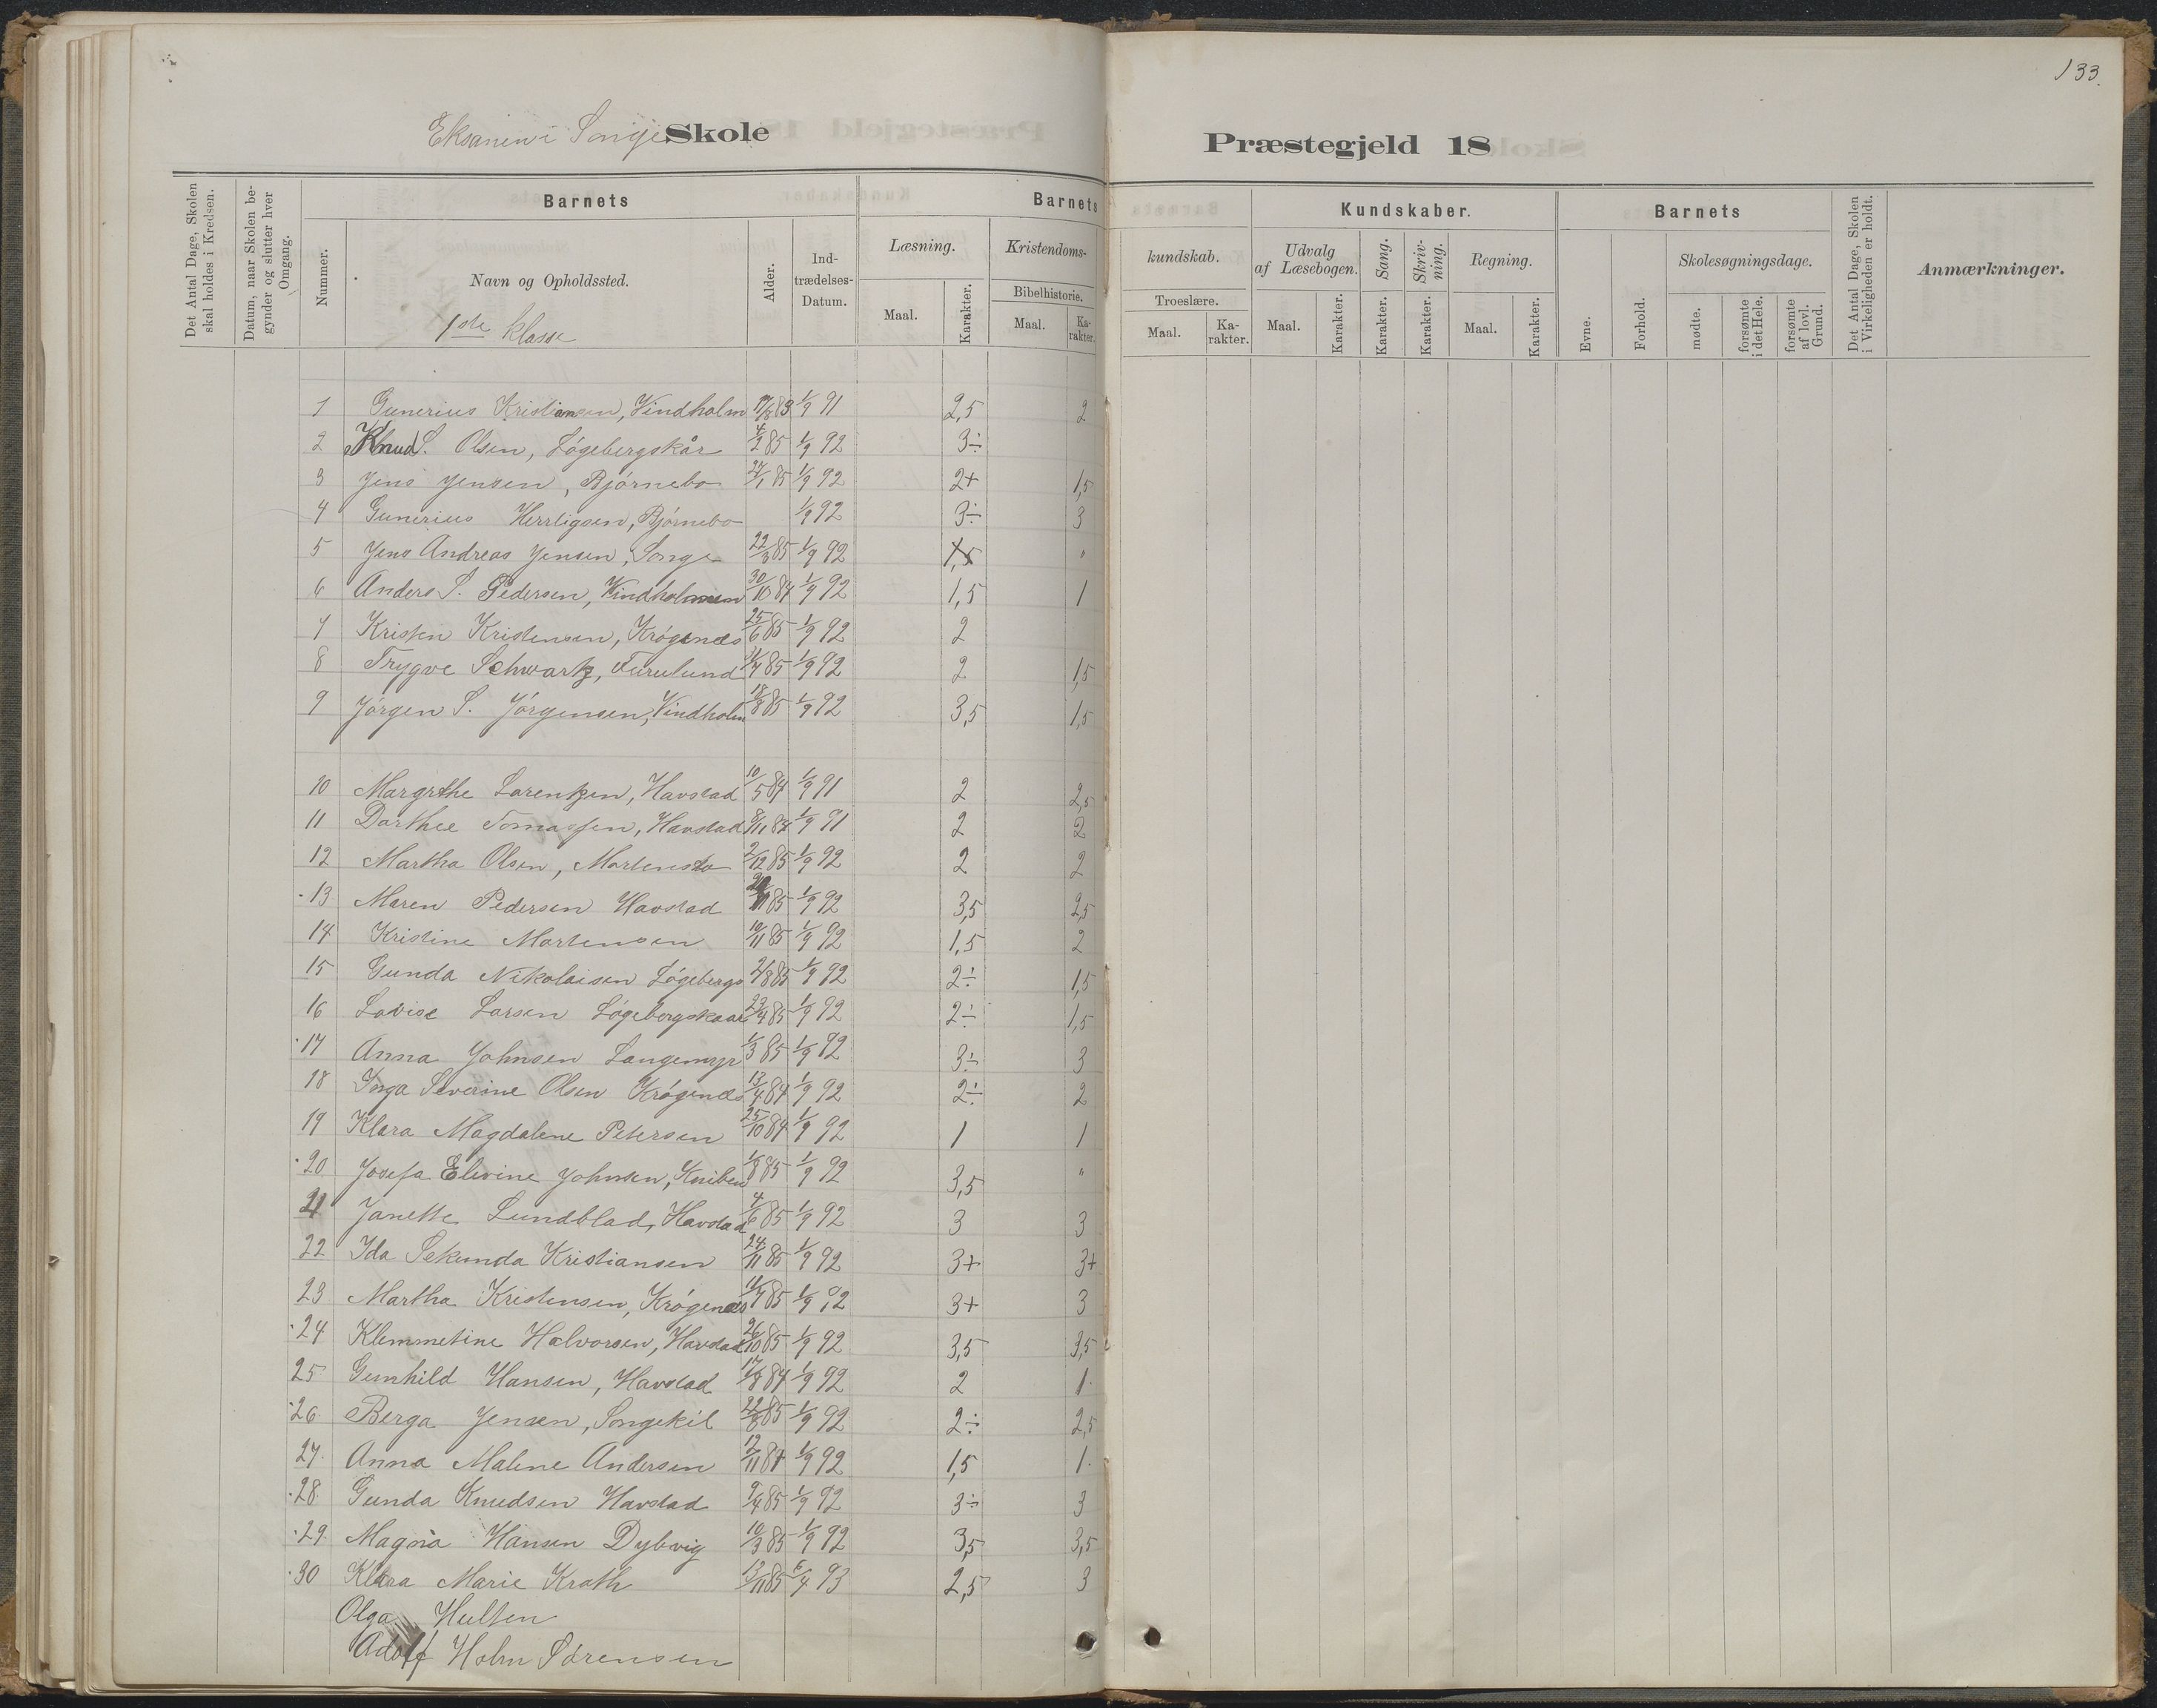 133.
Eksamen i Songe Skole
Præstegjeld 18
Det Antal Dage, Skolen skal holdes i Kredsen.
Datum, naar Skolen begynder og slutter hver Omgang.
Barnets
Nummer.
Navn og Opholdssted.
1ste klasse
Alder.
Indtrædelses-Datum.
Barnets Kundskaber.
Læsning.
Maal.
Karakter.
Kristendoms-kundskab.
Bibelhistorie.
Maal.
Karakter.
Troeslære.
Maal.
Karakter.
Udvalg af Læsebogen.
Maal.
Karakter.
Sang.
Karakter.
Skrivning.
Karakter.
Regning.
Maal.
Karakter.
Barnets
Evne.
Forhold.
Skolesøgningsdage.
mødte.
forsømte i det Hele.
forsømte af lovl. Grund.
Det Antal Dage, Skolen i Virkeligheden er holdt.
Anmærkninger.
1 Gunerius Kristiansen, Vindholm 83 1/9 91 2,5 2
2 Knud S. Olsen, Løgebergskår 4/2 85 1/9 92 3÷
3 Jens Jensen, Bjørnebo 27/1 85 1/9 92 2+ 1,5
4 Gunerius Herligsen, Bjørnebo 1/9 92 3÷ 3
5 Jens Andreas Jensen, Songe 22/3 85 1/9 92 1,5 "
6 Anders S. Pedersen, Vindholmen 30/10 84 1/9 92 1,5 1
7 Kristen Kristensen, Krøgenæs 25/6 85 1/9 92 2
8 Trygve Schwartz, Furulund 85 1/9 92 2 1,5
9 Jørgen S. Jørgensen, Vindholm 18/8 85 1/9 92 3,5 1,5
10 Margrthe Lorentzen, Havstad 10/5 84 1/9 91 2 2,5
11 Dorthee Tomassen, Havstad 8/11 84 1/9 91 2 2
12 Martha Olsen, Mortensbo 2/12 85 1/9 92 2 2
13 Maren Pedersen Havstad 85 1/9 92 3,5 2,5
14 Kristine Mortensen 10/11 85 1/9 92 1,5 2
15 Gunda Nikolaisen Løgebergs 2/8 85 1/9 92 2÷ 1,5
16 Lovise Larsen Løgebergskaar 23/4 85 1/9 92 2÷ 1,5
17 Anna Johnsen Langemyr 1/3 85 1/9 92 3÷ 3
18 Inga Severine Olsen Krøgenæs 13/4 84 1/9 92 2÷ 2
19 Klara Magdalene Petersen 25/10 84 1/9 92 1 1
20 Josefa Elevine Johnsen, Kniben 1/8 85 1/9 92 3,5 "
21 Janette Lundblad, Havstad 4/6 85 1/9 92 3 3
22 Ida Sekunda Kristiansen 24/11 85 1/9 92 3+ 3+
23 Martha Kristensen, Krøgenæs 11/7 85 1/9 92 3+ 3
24 Klemmetine Halvorsen, Havstad 26/10 85 1/9 92 3,5 3,5
25 Gunhild Hansen, Havstad 17/8 84 1/9 92 2 1
26 Berga Jensen, Songekil 22/8 85 1/9 92 2÷ 2,5
27 Anna Malene Andersen 12/11 84 1/9 92 1,5 1
28 Gunda Knudsen Havstad 9/4 85 1/9 92 3÷ 3
29 Magna Hansen Dybvig 10/3 85 1/9 92 3,5 3,5
30 Klara Marie Krath 13/11 85 6/4 93 2,5 3
Olga Hulten
Adolf Holm Sørensen